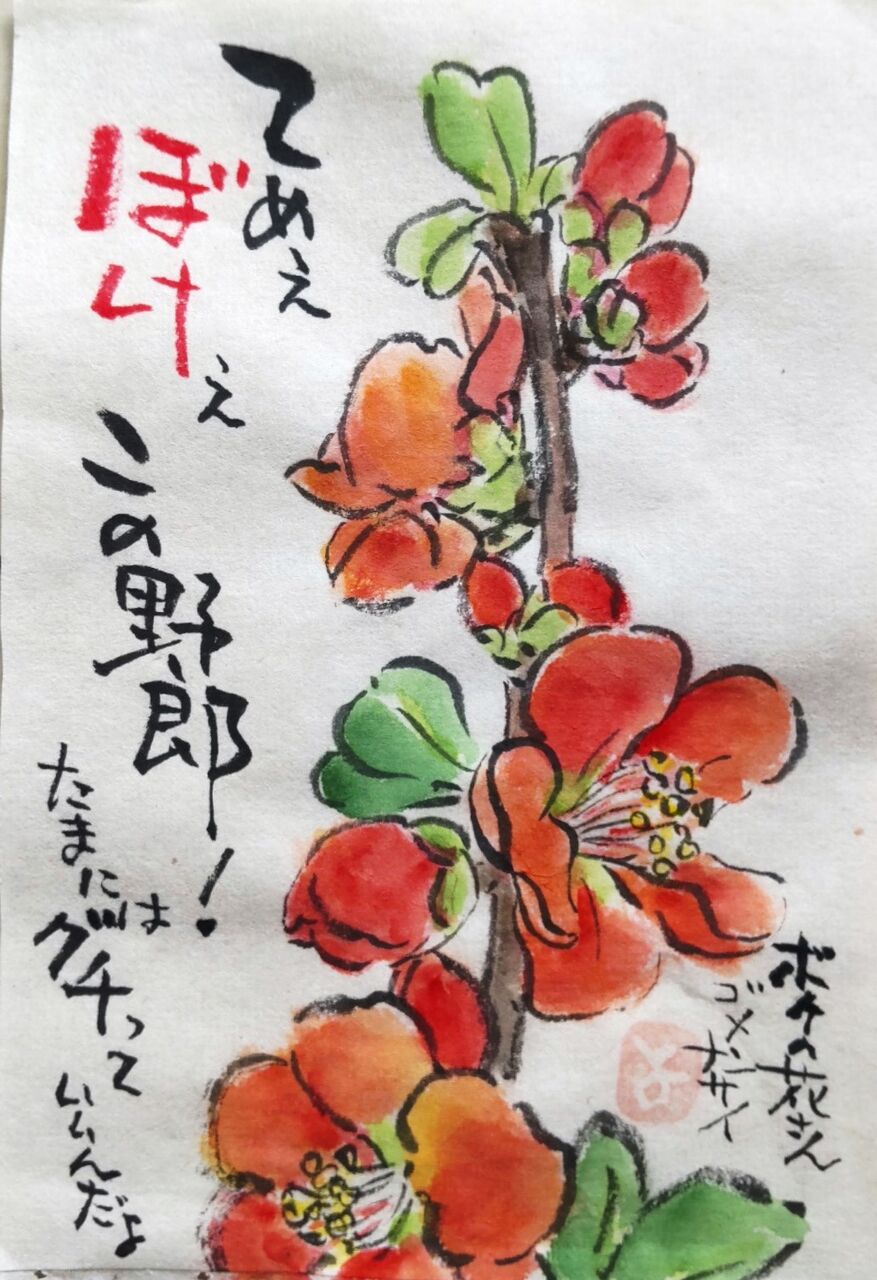 てめえ
ぼけえ
この野郎!
たまには
グチって
いいんだよ
ボケの花さん
ゴメンナサイ
よ